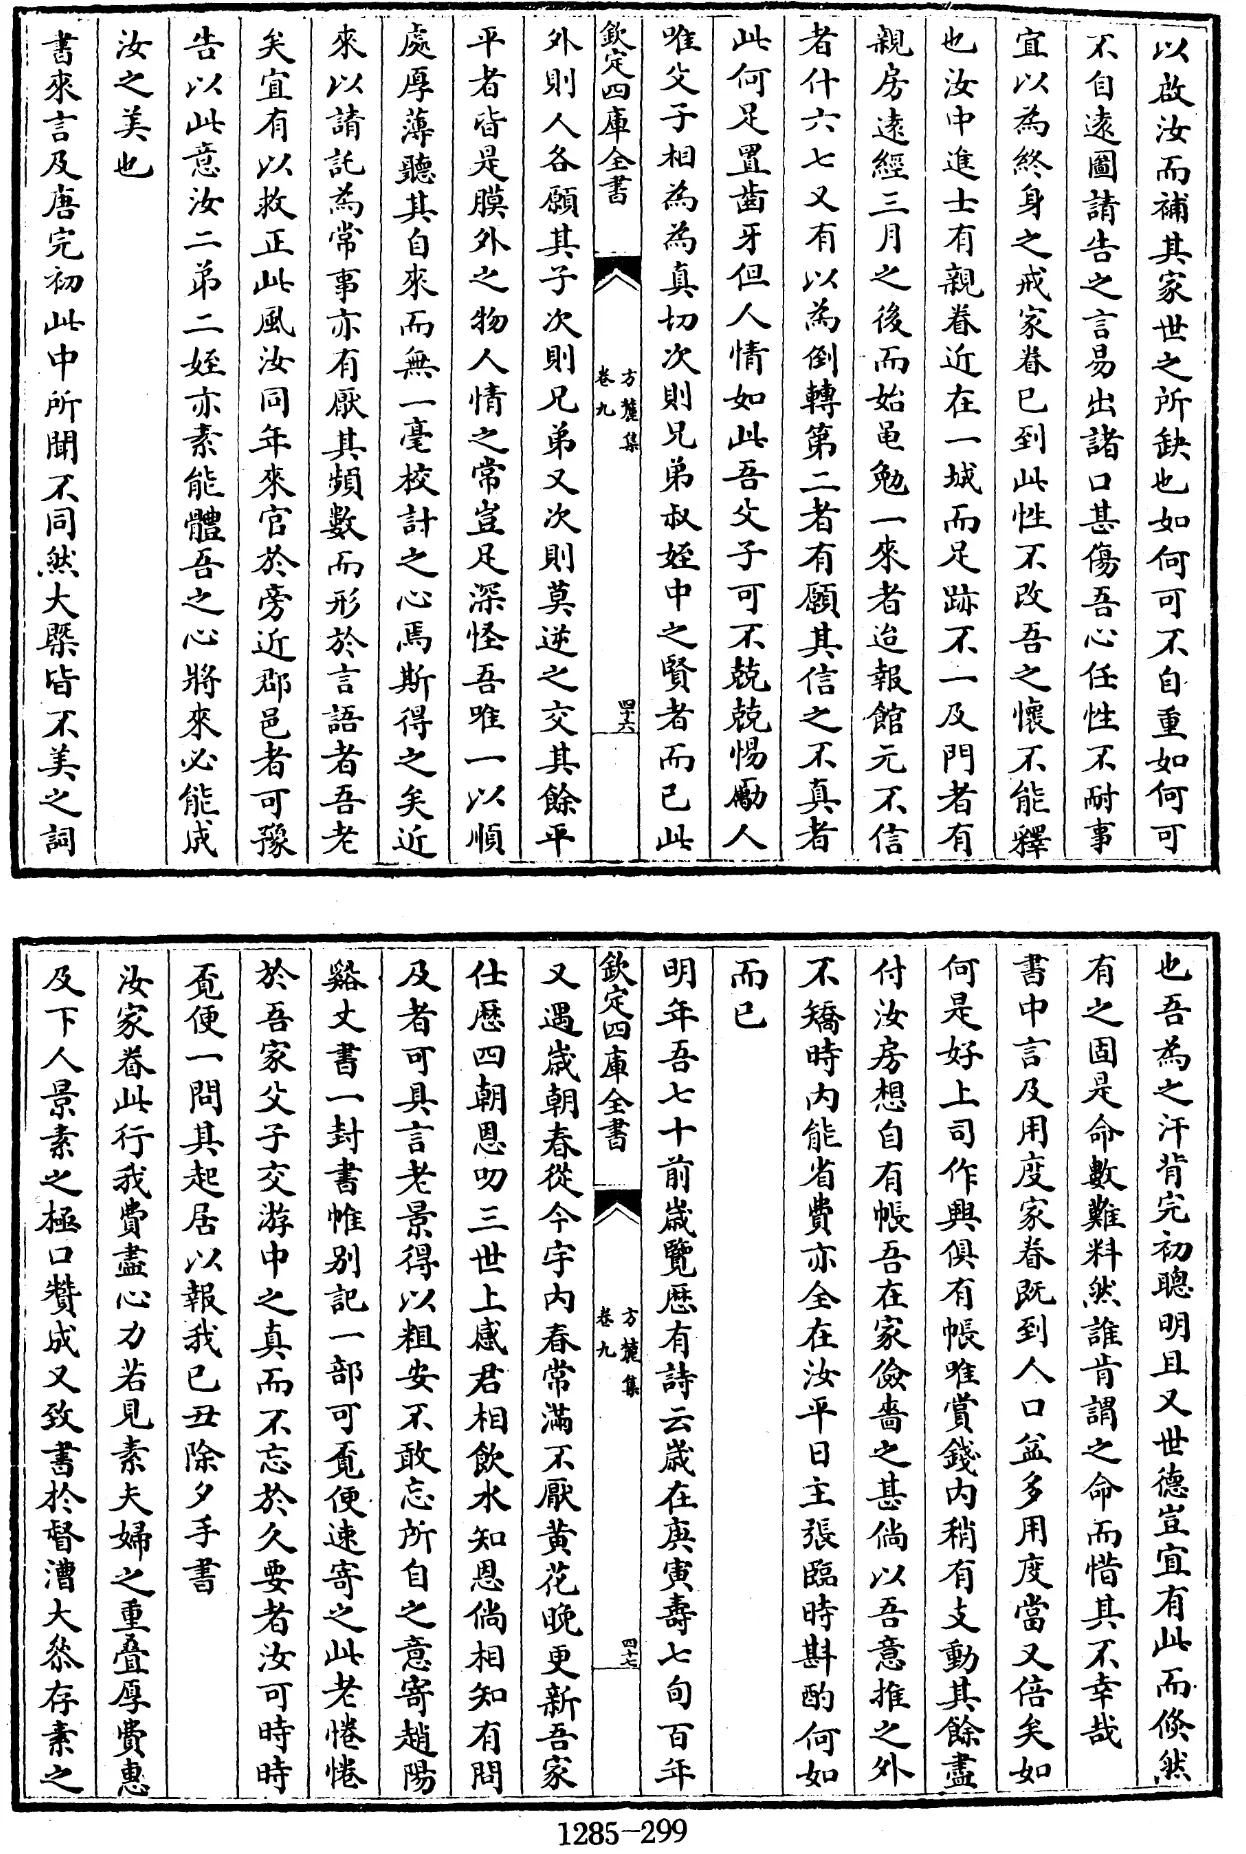 以啟汝而補其家世之所缺也如何可不自重如何可
不自遠圖請告之言易出諸口甚傷吾心任性不耐事
宜以為終身之戒家眷已到此性不改吾之懷不能釋
也汝中進士有親眷近在一城而足跡不一及門者有
親房遠經三月之後而始黽勉一來者迨報館元不信
者什六七又有以為倒轉第二者有願其信之不真者
此何足置齒牙但人情如此吾父子可不兢兢惕勵人
唯父子相為為真切次則兄弟叔姪中之賢者而已此
欽定四庫全書
方麓集
卷九
四十六
外則人各願其子次則兄弟又次則莫逆之交其餘平
平者皆是膜外之物人情之常豈足深怪吾唯一以順
處厚薄聽其自來而無一毫校計之心焉斯得之矣近
來以請託為常事亦有厭其頻數而形於言語者吾老
矣宜有以救正此風汝同年來官於旁近郡邑者可豫
告以此意汝二弟二姪亦素能體吾之心將來必能成
汝之美也
書來言及唐完初此中所聞不同然大槩皆不美之詞
也吾為之汗背完初聰明且又世德豈宜有此而倐然
有之固是命數難料然誰肯謂之命而惜其不幸哉
書中言及用度家眷既到人口益多用度當又倍矣如
何是好上司作興俱有帳唯賞錢內稍有支動其餘盡
付汝房想自有帳吾在家儉嗇之甚倘以吾意推之外
不矯時內能省費亦全在汝平日主張臨時斟酌何如
而已
明年吾七十前嵗覽歷有詩云嵗在庚寅壽七旬百年
欽定四庫全書
方麓集
卷九
四十七
又遇嵗朝春從今宇內春常滿不厭黃花晚更新吾家
仕歷四朝恩叨三世上感君相飲水知恩倘相知有問
及者可具言老景得以粗安不敢忘所自之意寄趙陽
谿丈書一封書帷别記一部可覔便速寄之此老惓惓
於吾家父子交游中之真而不忘於久要者汝可時時
覔便一問其起居以報我已丑除夕手書
汝家眷此行我費盡心力若見素夫婦之重叠厚費惠
及下人景素之極口贊成又致書於督漕大叅存素之
1285-299